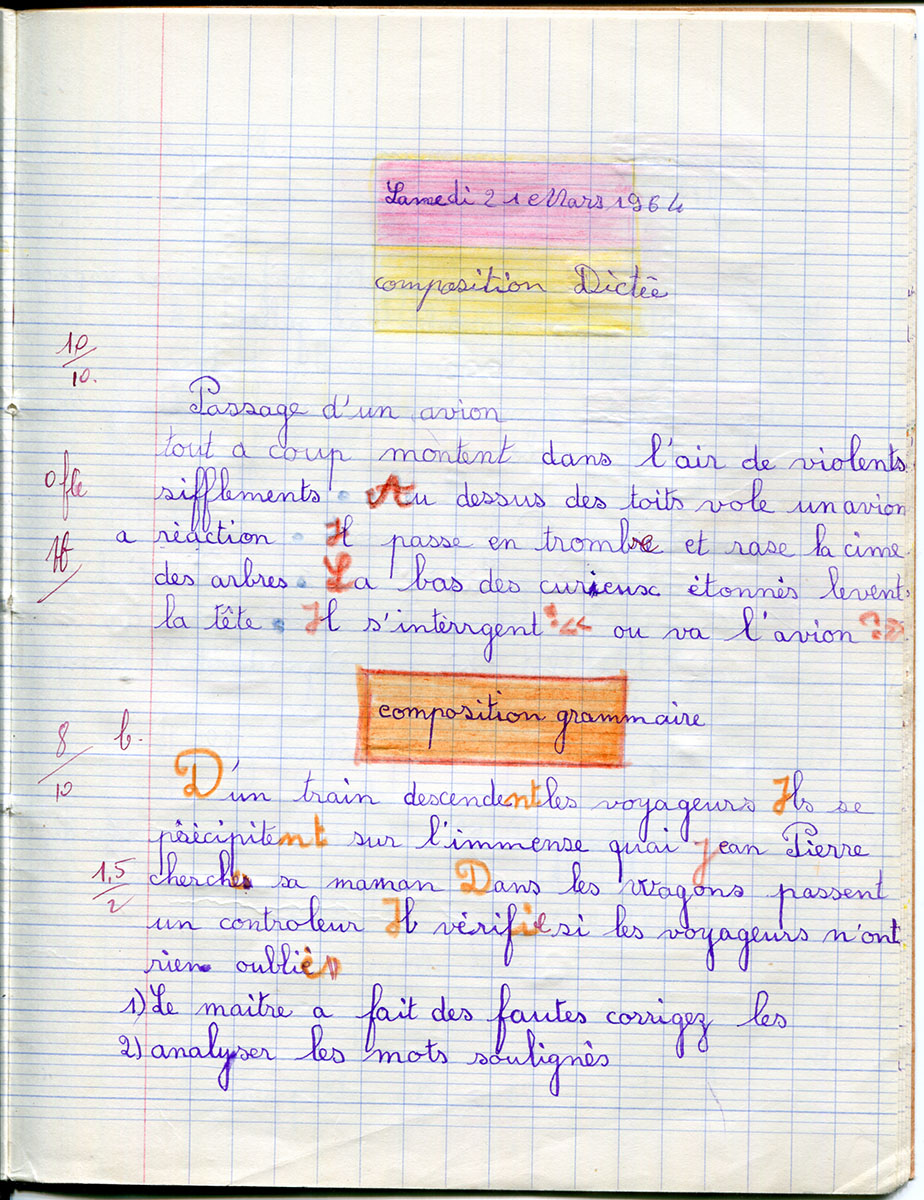 Samedi 21 Mars 1964
composition Dictée
10/10.
Passage d'un avion
tout a coup montent dans l'air de violents
sifflements. Au dessus des toits vole un avion
a réaction. Il passe en trombe et rase la cime
des arbres. La bas des curieux étonnés levent
la tête. Il s'interrgent :« ou va l'avion ?»
composition grammaire
8/10
b.
D'un train descendent les voyageurs Ils se
précipitent sur l'immense quai Jean Pierre
1,5/2
cherche sa maman Dans les wagons passent
un controleur Il vérifie si les voyageurs n'ont
rien oublié
1) Le maitre a fait des fautes corrigez les
2) analyser les mots soulignés